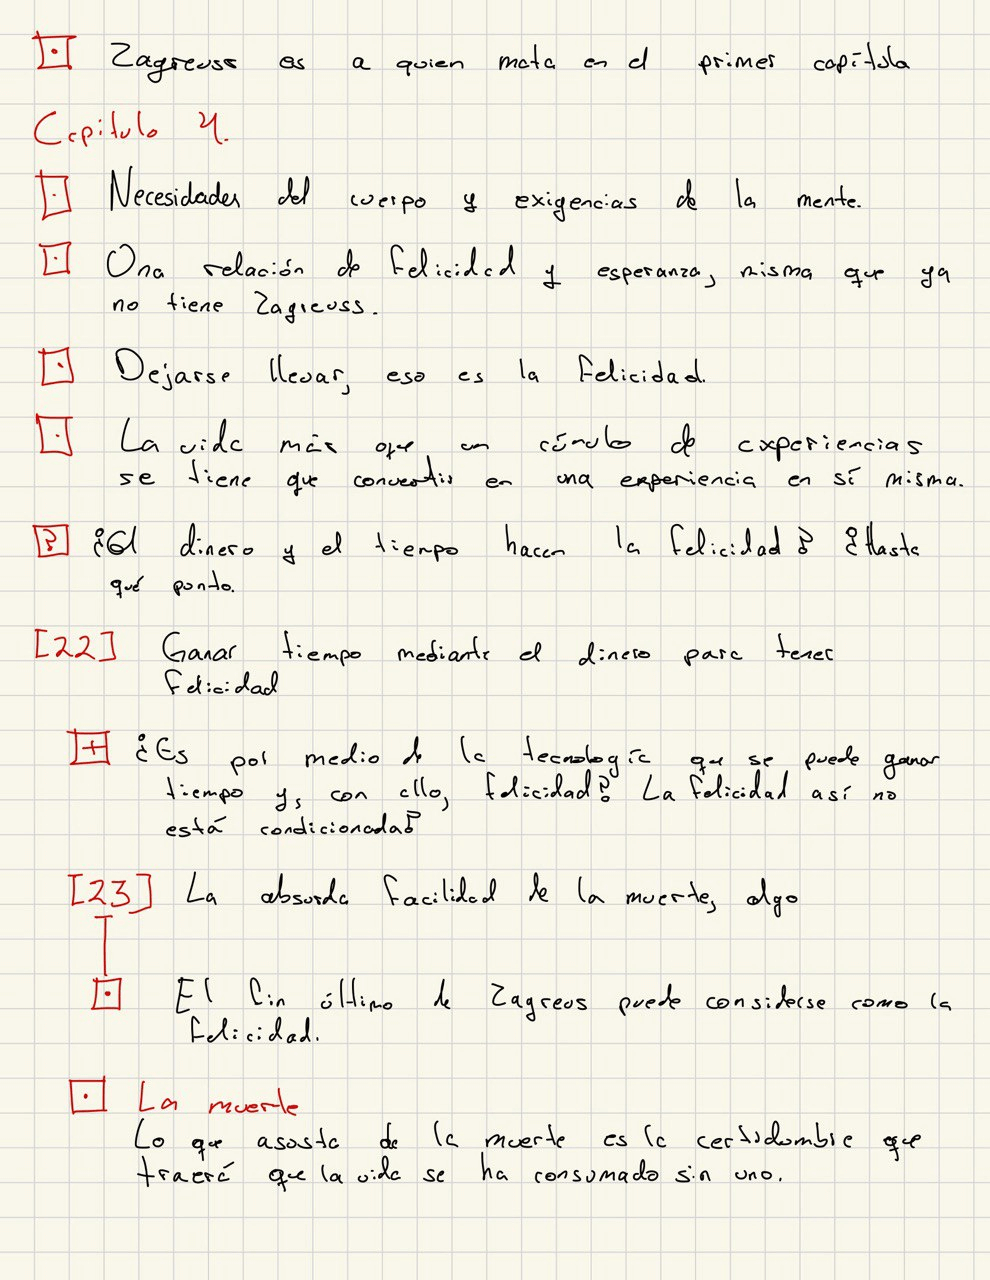 Zagreuss es a quien mata en el primer capítulo
Capitulo 4.
Necesidades del cuerpo y exigencias de la mente.
Una relación de felicidad y esperanza, misma que ya
no tiene Zagreuss.
Dejarse llevar, eso es la felicidad.
La vida más que un cúmulo de experiencias
se tiene que convertir en una experiencia en sí misma.
? ¿El dinero y el tiempo hacen la felicidad? ¿Hasta
qué punto.
[22] Ganar tiempo mediante el dinero para tener
felicidad
+ ¿Es por medio de la tecnología que se puede ganar
tiempo y, con ello, felicidad? La felicidad así no
está condicionada?
[23] La absurda facilidad de la muerte, algo
El fin último de Zagreus puede considerse como la
felicidad.
La muerte
Lo que asusta de la muerte es la certidumbre que
traerá que la vida se ha consumado sin uno.